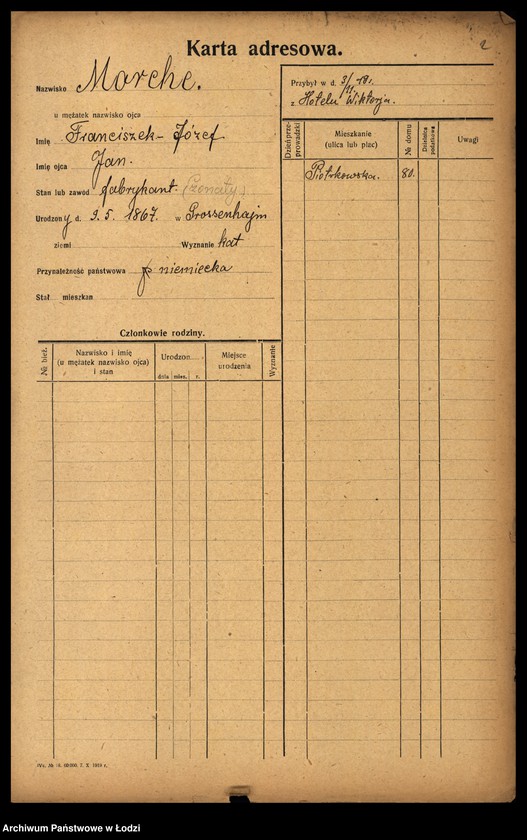 Karta adresowa.
2
Nazwisko Marche.
u mężatek nazwisko ojca
Imię Franciszek-Józef
Imię ojca Jan.
Stan lub zawód fabrykant. (żonaty)
Urodzony d. 9.5. 1867. w Grossenhajm
ziemi Wyznanie kat
Przynależność państwowa niemiecka
Stał. mieszkan
Członkowie rodziny.
№ bież.
Nazwisko i imię
(u mężatek nazwisko ojca)
i stan
Urodzon
dnia mies. r.
Miejsce
urodzenia
Wyznanie
Przybył w d. 3/11 18.
z Hotelu Wiktorja.
Dzień prze-
prowadzki
Mieszkanie
(ulica lub plac)
№ domu
Dzielnica
podatkowa
Uwagi
Piotrkowska. 80.
Archiwum Państwowe w Łodzi